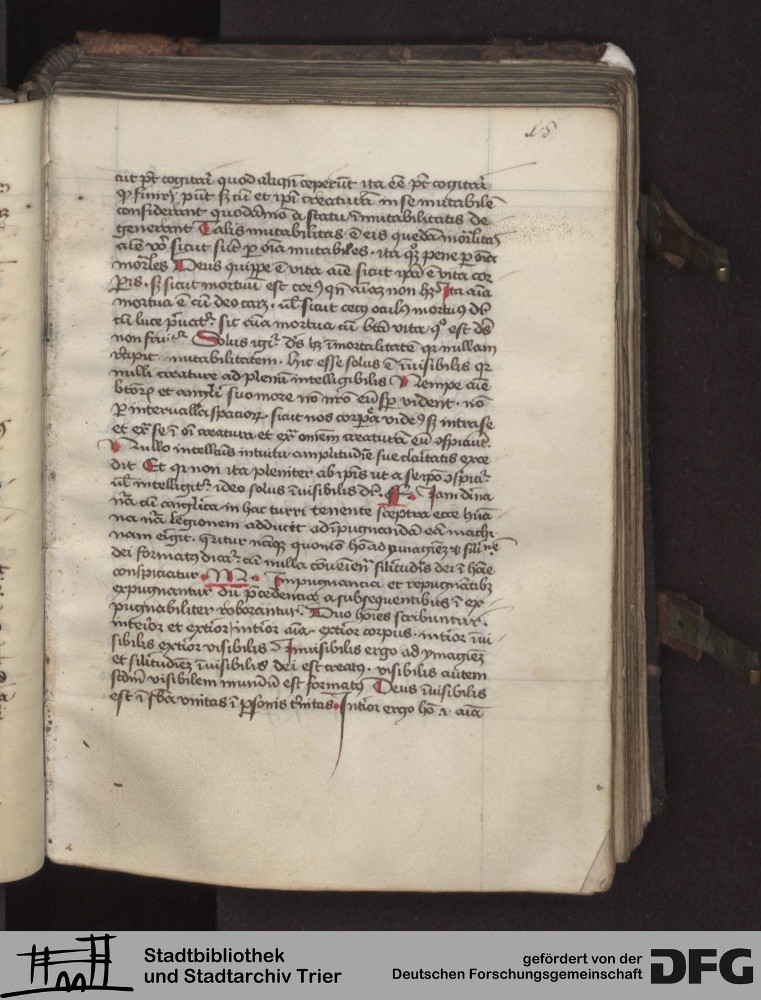 15
cut pōt cogitari quod aliqn̄ ceperūt ita eē pōt cogitari
ꝙ finiri pn̄t sꝫ cū et ipī creaturā in se mutabilē
considerant quodāmō a statu īmutabilitatis de
generant Talis mutabilitas ē eis quedā mōrlitas
aīe vō sicut sūt ꝑ oīa mutabiles · ita qꝫ pene ꝑ oīa
mōrles Deus quippe ē vita aīe sicut ipā ē vita cor
ꝑis · sꝫ sicut mortuū est corꝰ qn̄ aīaꝫ non hꝫ Ita aīa
mortua ē cū deo caret · ul̄ sicut cecꝰ oculꝰ mortuꝰ dr̄
cū luce pͥuatᷣ · sic aīa mortua cū bt̄a vita qͦ est dē
non fruitᷣ Solus igiᷣ dꝰ hꝫ īmortalitatē qꝛ nullam
recipit mutabilitatem · hic esse solus ē īuisibilis qꝛ
nulli creature ad plenū intelligibilis Nempe aīe
btōrꝫ et angl̄i suo more nō nr̄o eū sꝑ vident · nō
ꝑ interualla spacioꝝ · sicut nos corꝑa videmꝰ sꝫ intra se
et exᷓ se ī oī creatura et exᷓ omīem creaturā eū ꝯspiciūt ·
Nullo intellectus intuitu amplitudīem sue claritatis exce
dit Et qꝛ non ita pleniter ab ipīs ut a se ipō ꝯspicitᷣ
ul̄ intelligitᷣ ideo solus īuisibilis dr̄ · Iam diuīa
nr̄a cū angl̄ica in hac turri tenente sceptra ecce hūa
na nr̄a legionem adducit ad īpugnandā eā machi
nam erigit · qͥritur naꝫqꝫ quomō hō ad ymagīeꝫ et sīlīnē
dei formatꝰ dicatᷣ · cū nulla cōueniēn̄ sīlitudīs dei ī hoīe
conspiciatur · M · Inpugnancia et repugnātibꝫ
expugnantur dū pͥcedencia a subsequentibus ī ex
pugnabiliter roborantur · Duo hoīes scribuntur ·
interior et exterior interior aīa · exterior corpus · interior īui
sibilis exterior visibilis Inuisibilis ergo ad ymagīeꝫ
et sīlitudīeꝫ īuisibilis dei est creatꝰ · visibilis autem
scdm̄ visibilem mundū est formatꝰ Deus īuisibilis
est ī sbā vnitas ī ꝑsonis tͥnitas · Interior ergo hō ·i· aīa
Stadtbibliothek
und Stadtarchiv Trier
gefördert von der
Deutschen Forschungsgemeinschaft
DFG